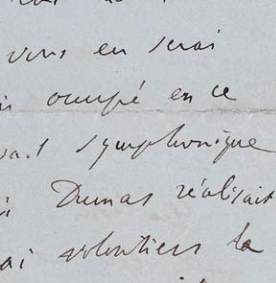 vous en serai
occupé en ce
symphonique
Dumas réalisait
ai volontiers la